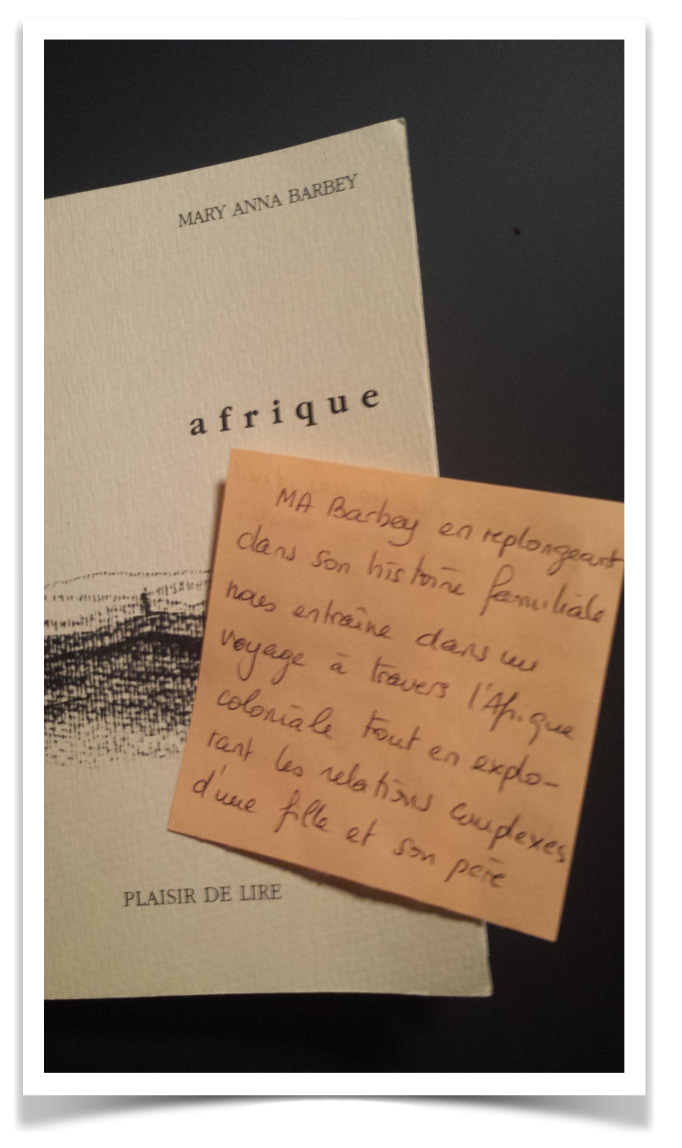 MARY ANNA BARBEY
afrique
MA Barbey en replongeant
dans son histoire familiale
nous entraîne dans un
voyage à travers l'Afrique
coloniale tout en explo-
rant les relations complexes
d'une fille et son père
PLAISIR DE LIRE